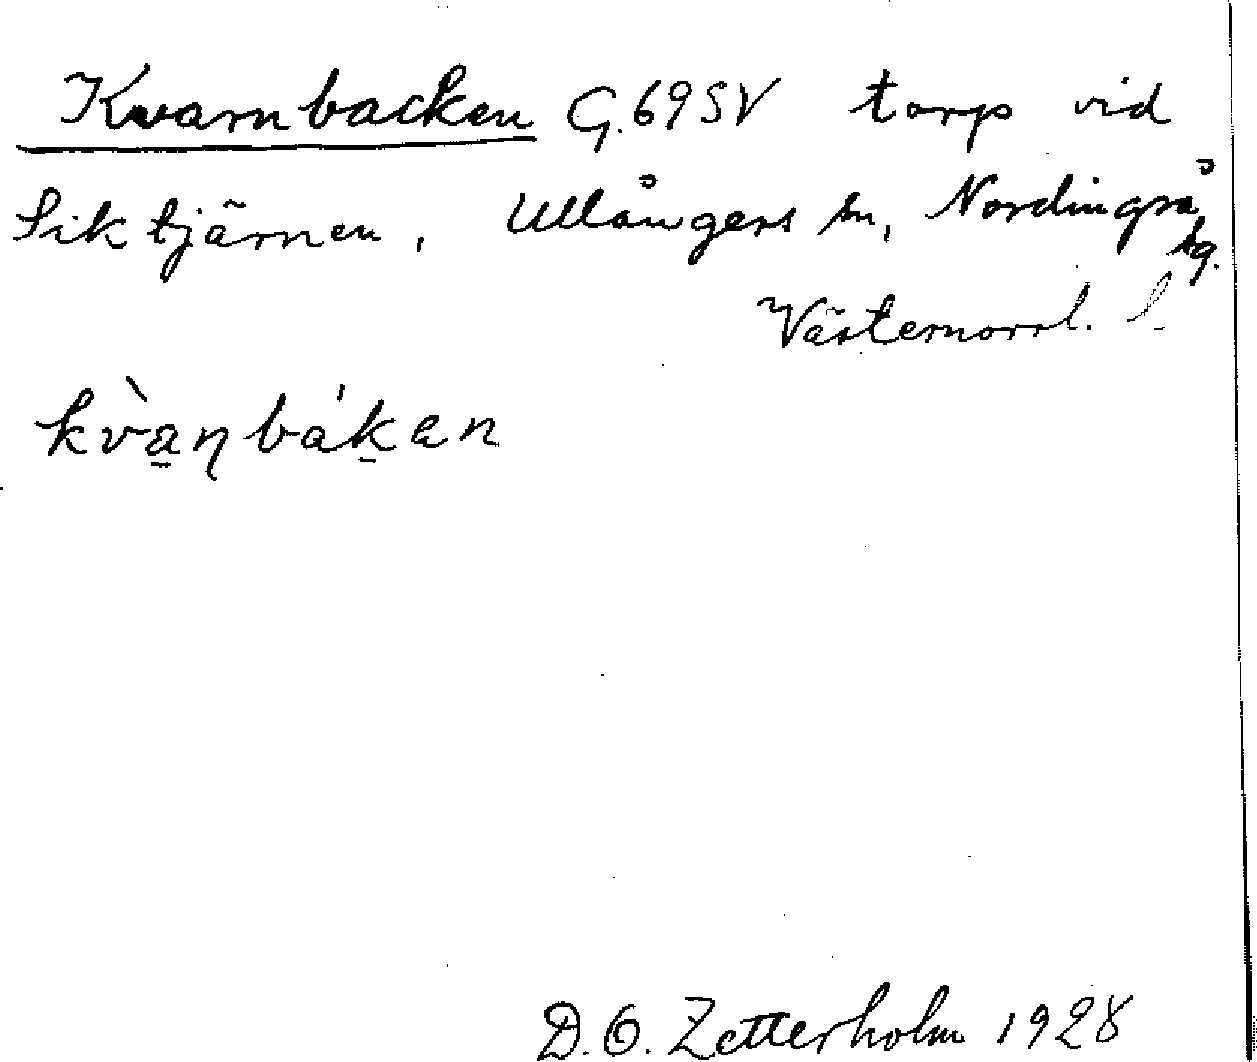 Kvarnbacken G. 69 SV torp vid
Siktjärnen, Ullångers sn, Nordingrå
tg.
Västernorrl. l.
kvànbáken
D. O. Zetterholm 1928